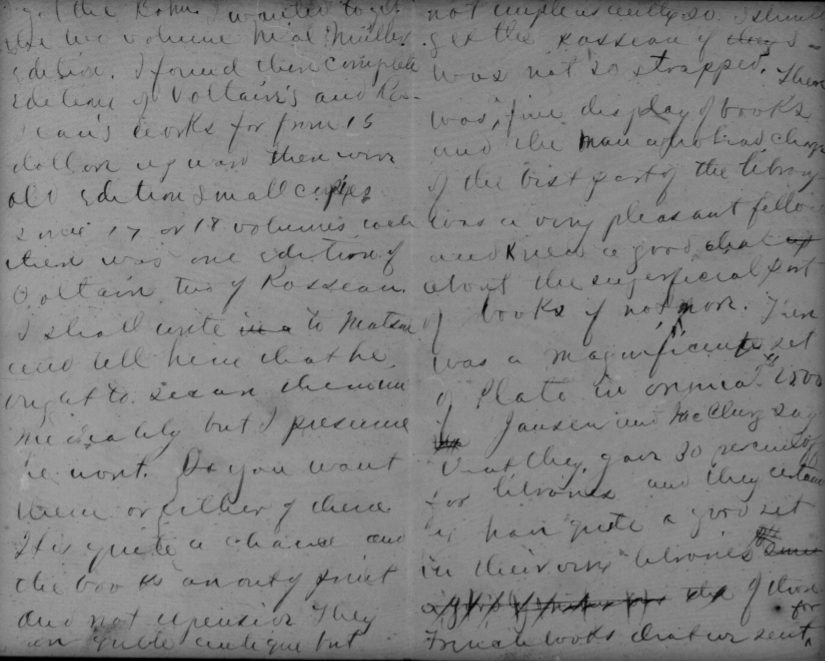 get the Bohn I wanted to get
the two volume Neal Müller
edition. I found then complete
editions of Voltair's and Ros-
seau's works for from 15
dollars upward there were
old edition small copies
some 17 or 18 volumes each
there was one edition of
Voltair two of Rosseau.
I shall write to Matson
and tell him that he
ought to secure them
immediately but I presume
he wont. Do you want
them or either of them
It is quite a chance and
the books are only print
and not expensive They
are quite antique but
not unpleasantly so. I should
get the Rosseau if I
was not so strapped. There
was fine display of books
and the man who had charge
of the best part of the library
was a very pleasant fellow
and knew a good deal
about the superficial part
of books if not more. There
was a magnificent set
of Plato in original
if Jansen and McClurg say
that they gave 30 percent off
for libraries and they certain
have quite a good set
in their own libraries
of those
French books that we sent for